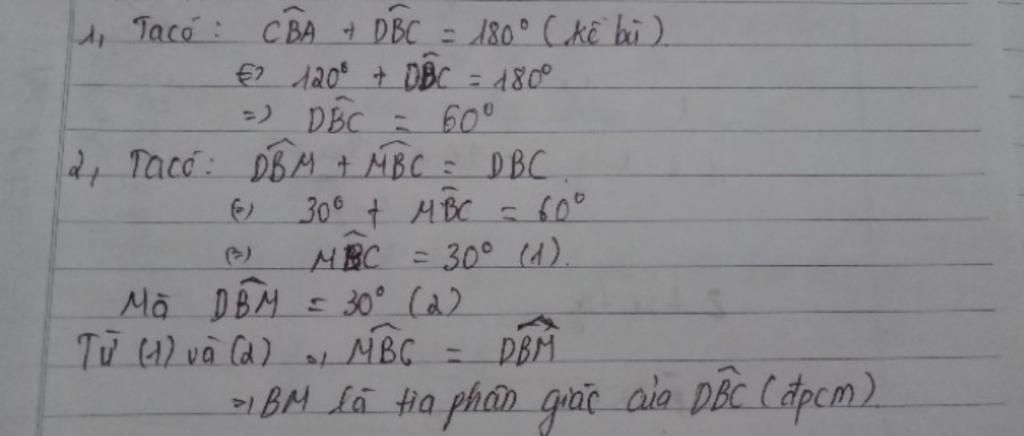 1, Ta có: CB̂A + DB̂C = 180° (kề bù)
⇔ 120° + DB̂C = 180°
=> DB̂C = 60°
2, Ta có: DB̂M + MB̂C = DBC
⇔ 30° + MB̂C = 60°
⇔ MB̂C = 30° (1).
Mà DB̂M = 30° (2)
Từ (1) và (2) => MB̂C = DB̂M
=> BM là tia phân giác của DB̂C (đpcm)